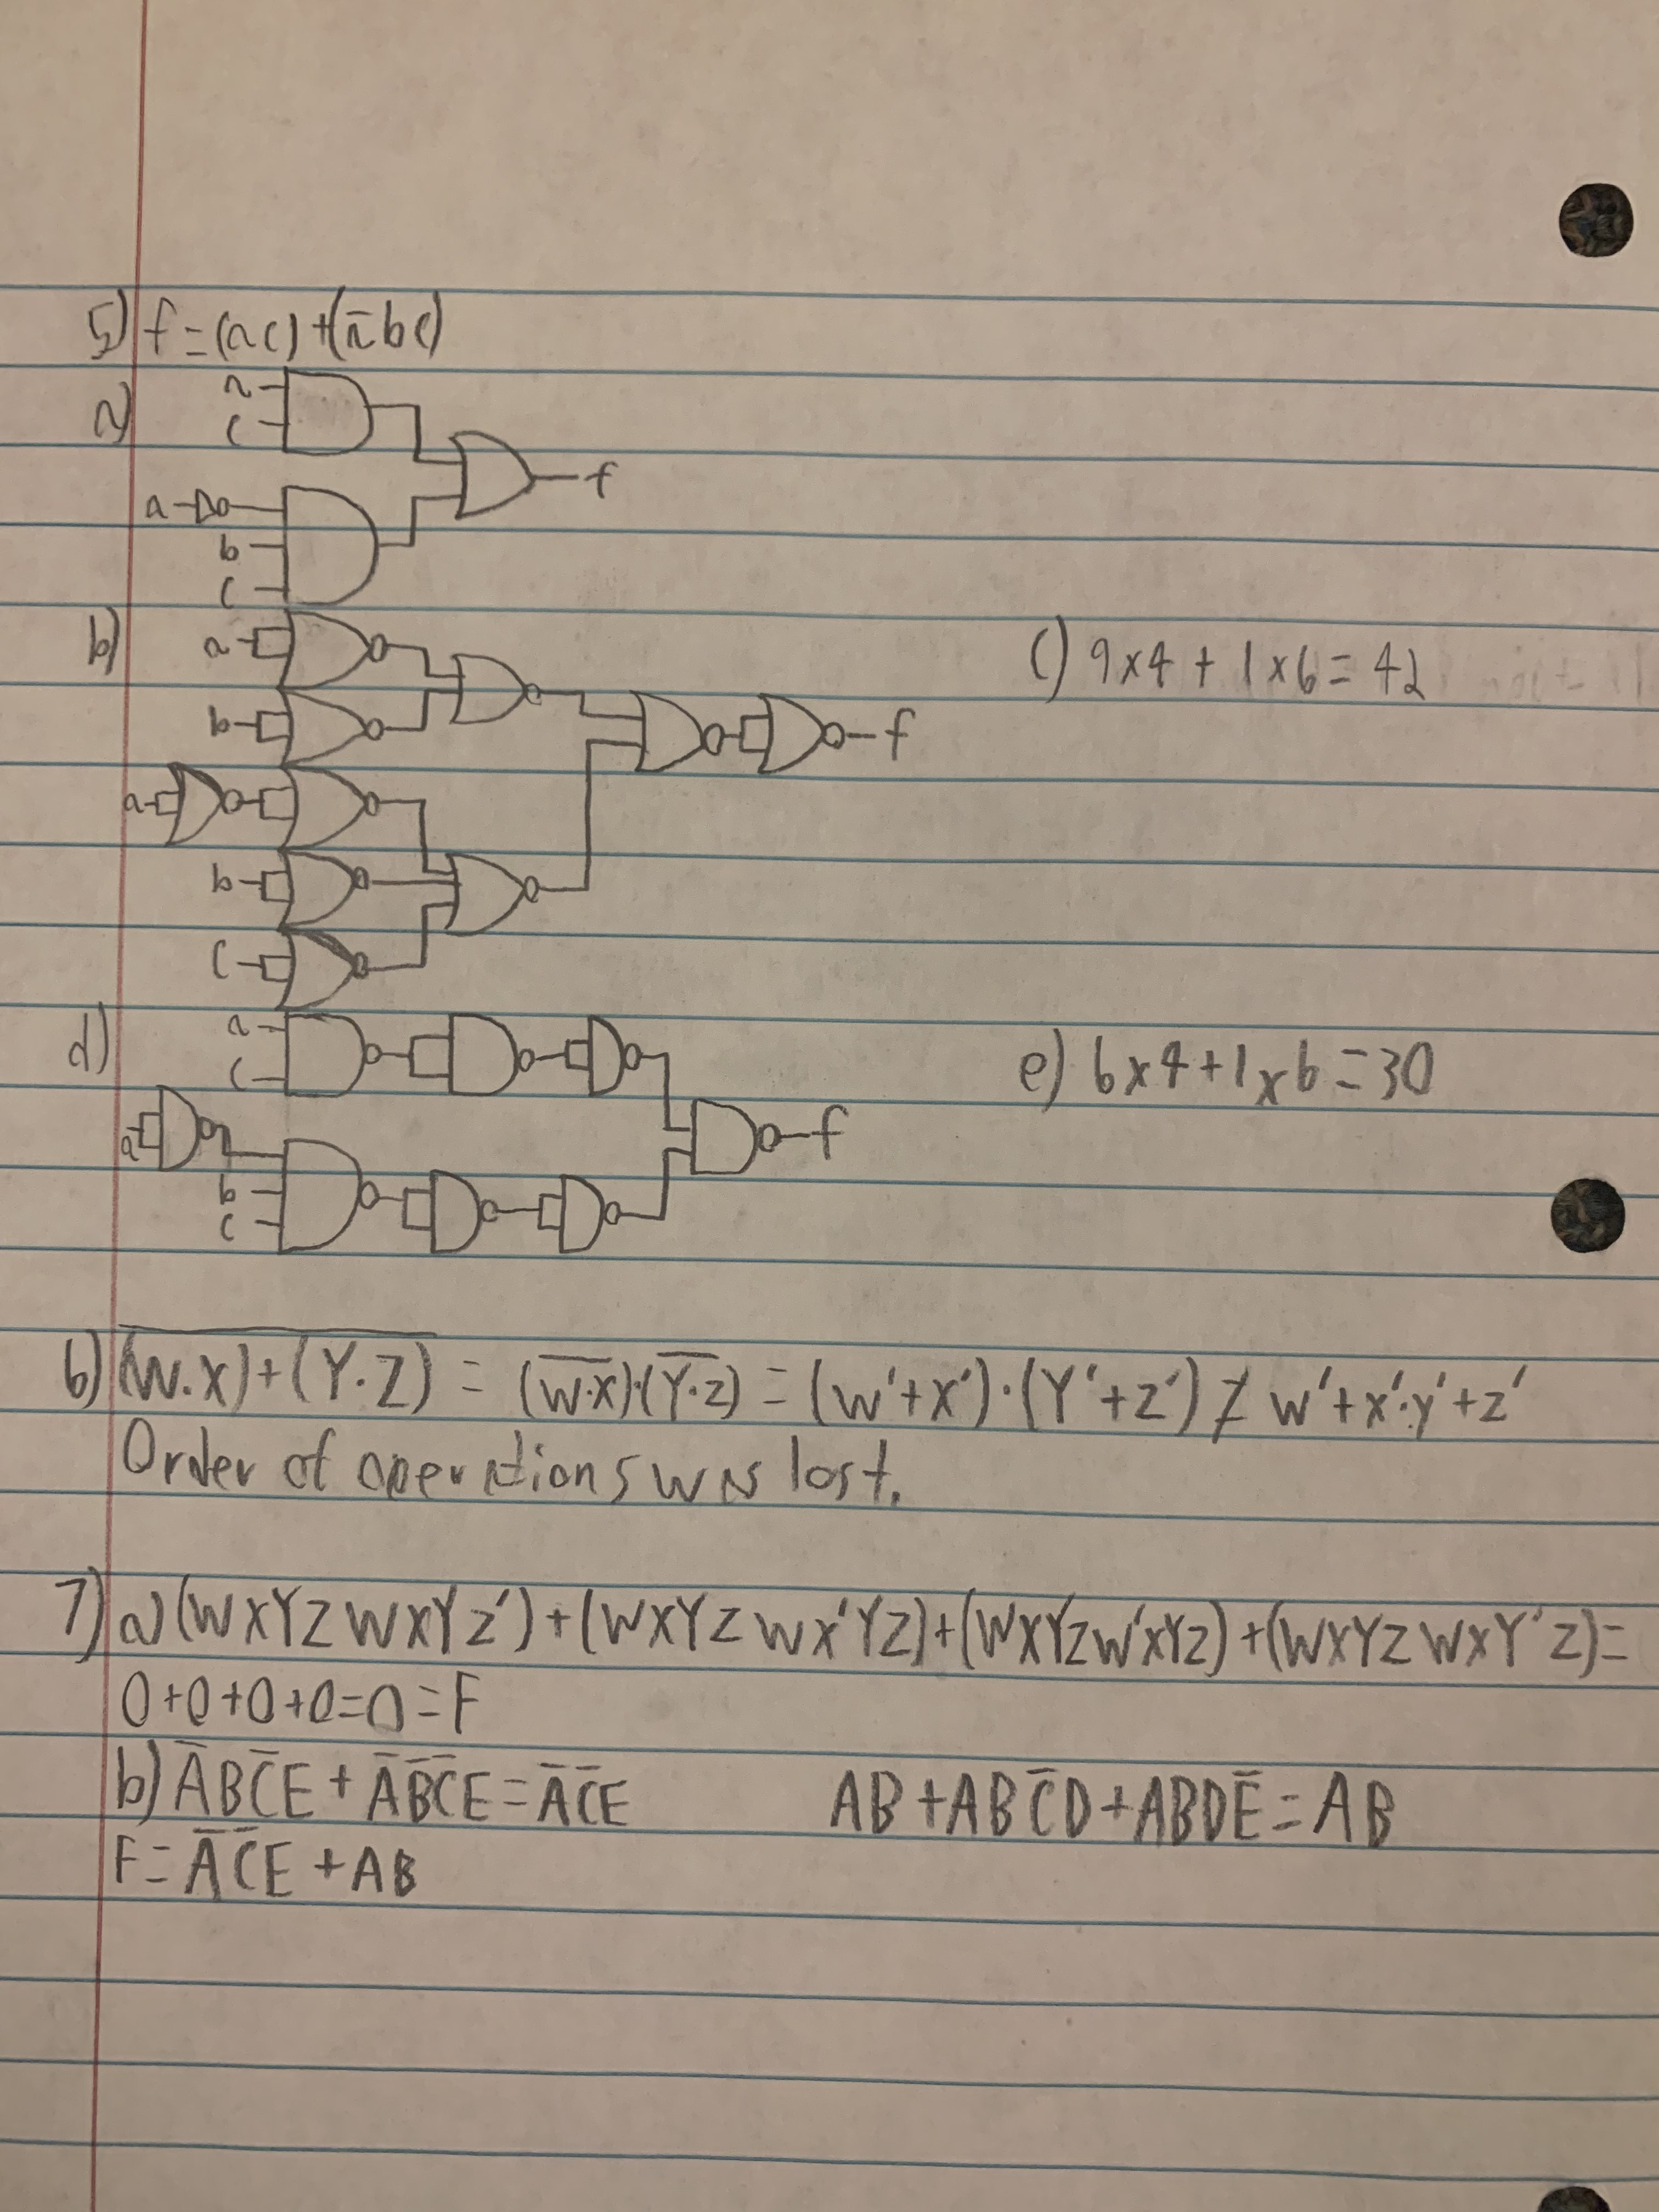 5) f = (ac) + (a̅bc)
a) a
c
f
a
b
c
b) a
b
f
a
b
c
c) 9x4 + 1x6 = 42
d) a
c
a
f
b
c
e) 6x4+1x6=30
6) \overline{(W.X)+(Y.Z)} = (\overline{W.X})·(\overline{Y.Z}) = (W'+X')·(Y'+Z') ≠ W'+X'·Y'+Z'
Order of operations was lost.
7) a) (WXYZWXYZ')+(WXYZWX'YZ)+(WXYZW'XYZ)+(WXYZWXY'Z)=
0+0+0+0=0=F
b) A̅BC̅E + A̅B̅C̅E = A̅C̅E AB+ABC̅D+ABDE̅=AB
F= A̅C̅E + AB